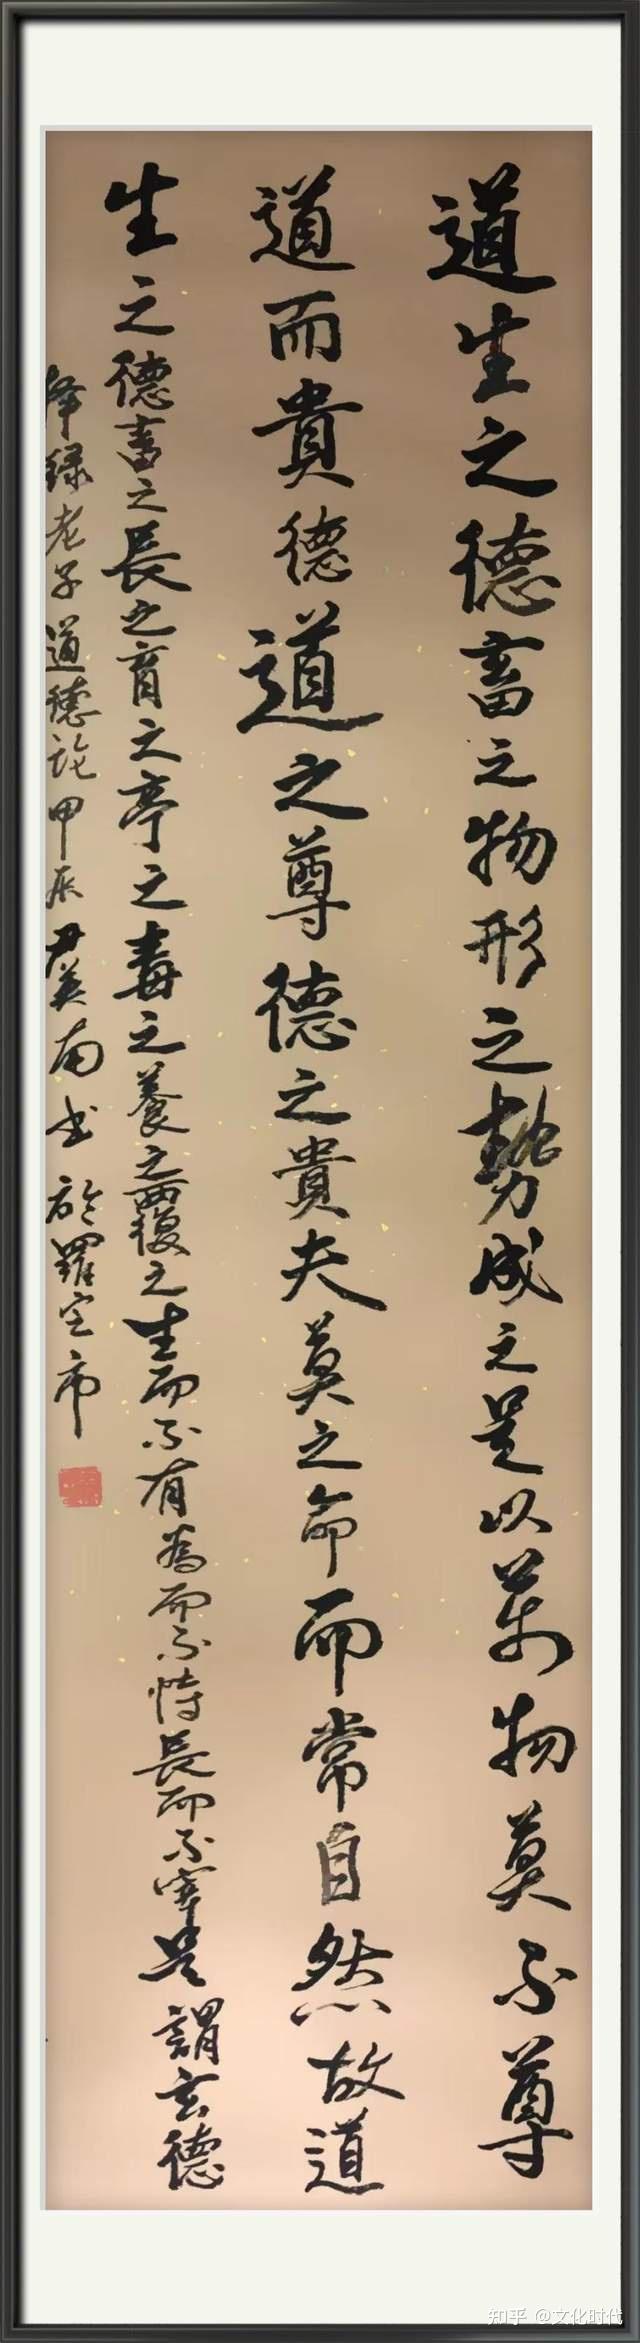 道生之德畜之物形之勢成之是以萬物莫不尊
道而貴德道之尊德之貴夫莫之命而常自然故道
生之德畜之長之育之亭之毒之養之覆之生而不有為而不恃長而不宰是謂玄德
錄老子道德論甲辰尹英南书於羅定市
知乎 @文化时代